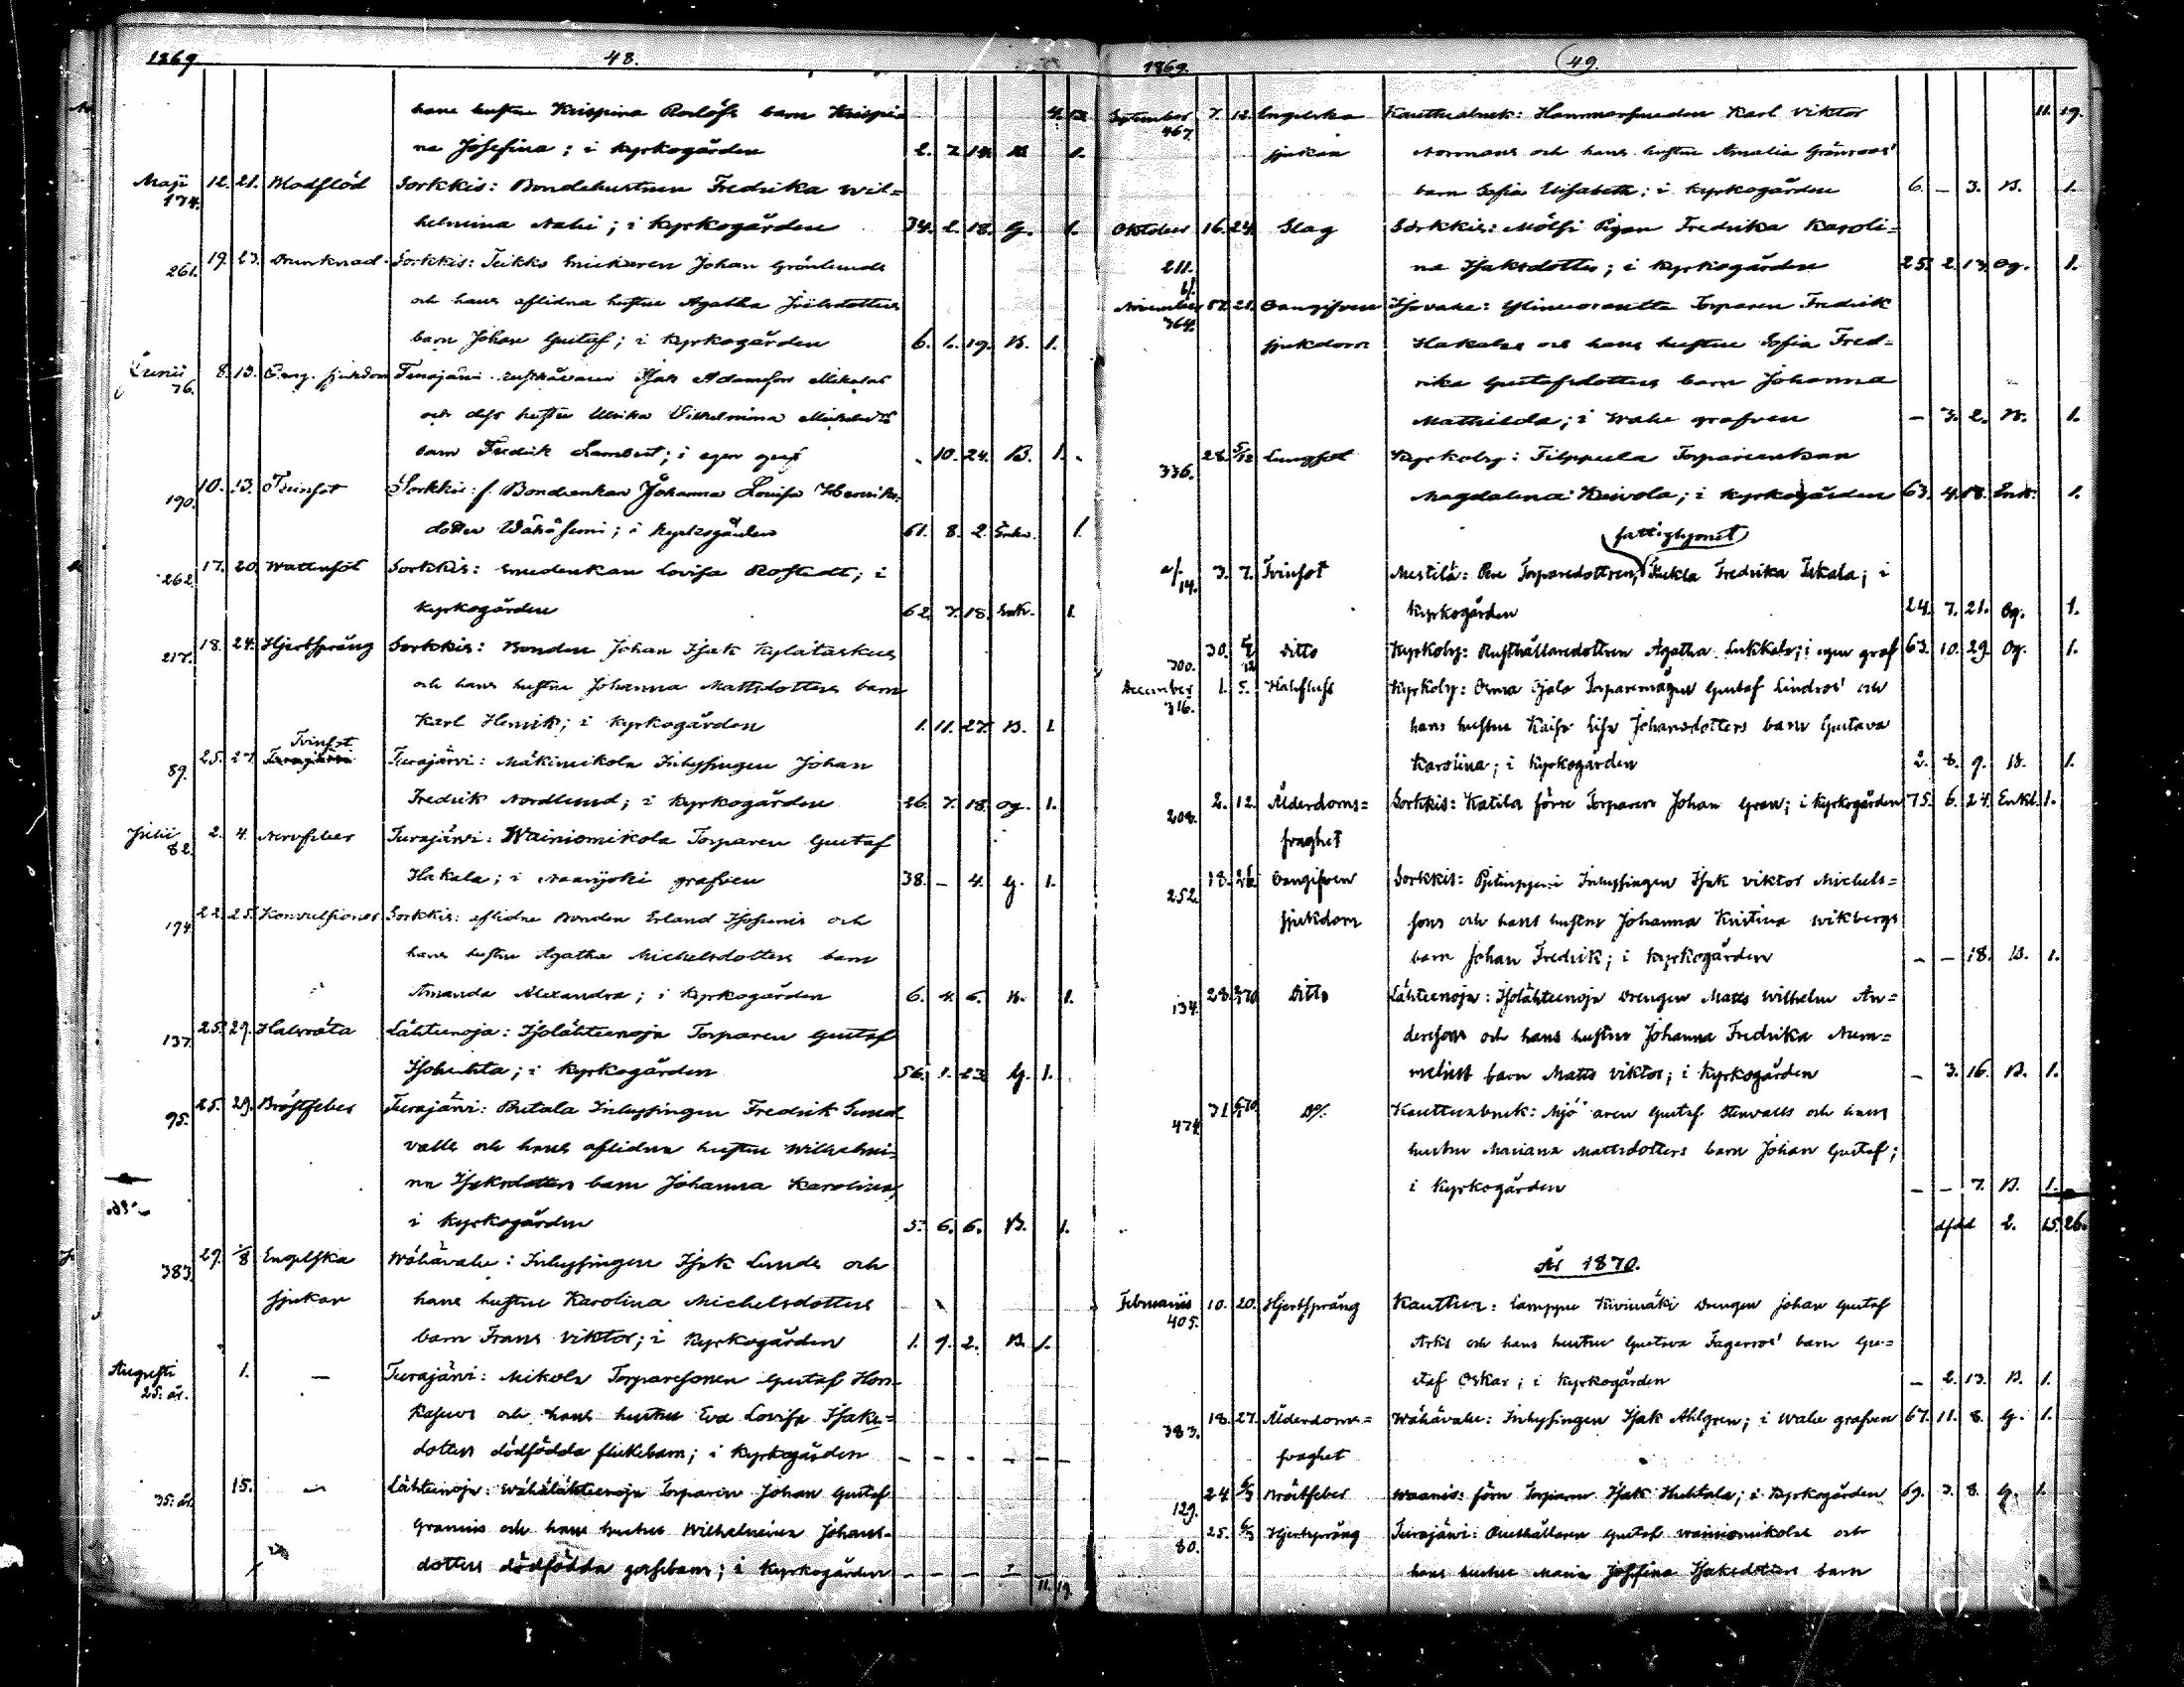 1869. 48.
hans hustru Krispina Roslöfs barn Krispi= 4. 13.
na Josefina; i kyrkogården 2. 7. 14. 1.
Maji 174. 12. 21. Blodflöd Sorkkis: Bondehustrun Fredrika Wil=
helmina Nahi; i kyrkogården 34. 2. 18. G. 1.
261. 19. 23. Drunknad Sorkkis: Johan Grönlunds
och hans aflidna hustru Agatha Joelsdotters
barn Johan Gustaf; i kyrkogården 6. 6. 19. B. 1.
Junii 76. 8. 13. Oang. sjukdom Turajärvi Isak Adamsson Mikolas
och dess hustru Ulrika Vilhelmina
barn Fredrik Lambert; i egen graf - 10. 24. B. 1.
190. 10. 13. Tvinsot Sorkkis: f. Bondenkan Johanna Lovisa Henriks
dotter Wähäsumi; i kyrkogården 61. 8. 2. Enk. 1.
262. 17. 20. Wattusot Sorkkis: Smedenkan Lovisa Rostedt; i
kyrkogården 62. 7. 18. Enk. 1.
217. 18. 24. Hjertsprång Sorkkis: Bonden Johan Isak Kylätaskus
och hans hustru Johanna Mattsdotters barn
Karl Henrik; i kyrkogården 1. 11. 27. B. 1.
Tvinsot
89. 25. 27. Turajärvi: Mäkimikola Inhysingen Johan
Fredrik Nordlund; i kyrkogården 26. 7. 18. Og. 1.
Julii 82. 2. 4. Nervfeber Turajärvi: Wainiomikola Torparen Gustaf
Hakala; i Naarijoki grafven 38. - 4. G. 1.
174. 22. 25. Konvulsioner Sorkkis: aflidne Bonden Erland och
hans hustru Agatha Michelsdotters barn
Amanda Alexandra; i kyrkogården 6. 4. 6. B. 1.
137. 25. 29. Halsröta Lähteenoja: Isolähteenoja Torparen Gustaf
Isohuhta; i kyrkogården 56. 1. 23. G. 1.
95. 25. 29. Bröstfeber Turajärvi: Inhysingen Fredrik Sund
valls och hans aflidna hustru Wilhelmi=
na Isaksdotters barn Johanna Karolina;
i kyrkogården 5. 6. 6. B. 1.
383. 29. 1/8 Engelska Wähävahe: Inhysingen Isak Lunds och
sjukan hans hustru Karolina Michelsdotters
barn Frans Viktor; i kyrkogården 1. 9. 2. B. 1.
Augusti 25. år. 1. - Turajärvi: Mikola Torparesonen Gustaf
och hans hustru Eva Lovisa Isaks=
dotters dödfödda flickebarn; i kyrkogården - - - - - -
35. år. 15. - Lähteenoja: Wähälähteenoja Torparen Johan Gustaf
och hans hustru Wilhelmina Johans=
dotters dödfödda gossebarn; i kyrkogården - - - -
11. 19.
1869. 49.
September 467. 7. 12. Engelska Kauttuabruk: Hammarsmeden Karl Viktor 11. 19.
sjukan Normans och hans hustru Amalia Grönroos'
barn Sofia Elisabeth; i kyrkogården 6. - 3. B. 1.
Oktober 211. 16. 24. Slag Sorkkis: Mölsi Pigan Fredrika Karoli=
na Isaksdotter; i kyrkogården 25. 2. 13. Og. 1.
November 364. 21. Oangifven Torparen Fredrik
sjukdom Hakalas och hans hustru Sofia Fred=
rika Gustafsdotters barn Johanna
Mathilda; i Wahe grafven - 3. 2. B. 1.
336. 28. 5/12 Lungsot Kyrkoby: Filppula Torpareenkan
Magdalena Keivola; i kyrkogården 63. 4. 18. Enk. 1.
fattighjonet
14. 3. 7. Tvinsot Mestilä: Pere Torparedottren, Thekla Fredrika Iskala; i
kyrkogården 24. 7. 21. Og. 1.
300. 30. 5/12 Ditto Kyrkoby: Rusthållaredottren Agatha Lukkala; i egen graf 63. 10. 29. Og. 1.
December 316. 1. 5. Halsfluss Kyrkoby: Torparemågen Gustaf Lindros' och
hans hustru Kaisa Lisa Johansdotters barn Gustava
Karolina; i kyrkogården 2. 8. 9. B. 1.
208. 2. 12. Ålderdoms= Sorkkis: Katila förre Torparen Johan Gran; i kyrkogården 75. 6. 24. Enkl. 1.
svaghet
252. 18. 26. Oangifven Sorkkis: Inhysingen Isak Viktor Michels=
sjukdom sons och hans hustrus Johanna Kristina Wikbergs
barn Johan Fredrik; i kyrkogården - - 18. B. 1.
134. 28. Ditto Lähteenoja: Isolähteenoja Drengen Matts Wilhelm An=
derssons och hans hustrus Johanna Fredrika Num=
melins barn Matts Viktor; i kyrkogården - 3. 16. B. 1.
474. 31. D:o Kauttuabruk: Gustaf Stenvalls och hans
hustru Mariana Mattsdotters barn Johan Gustaf;
i kyrkogården - - 7. B. 1.
dfdd 2. 15. 26.
År 1870.
Februarii 405. 10. 20. Hjertsprång Kauttua: Kivimäki Drengen Johan Gustaf
och hans hustru Gustava Fagerros' barn Gu=
staf Oskar; i kyrkogården - 2. 13. B. 1.
383. 18. 27. Ålderdoms= Wähävahe: Inhysingen Isak Ahlgren; i Wahe grafven 67. 11. 8. G. 1.
svaghet
129. 24. 6/3 Bröstfeber Waanis: förre Torparen Isak Huhtala; i kyrkogården 69. 3. 8. G. 1.
80. 25. 6/3 Hjertsprång Turajärvi: Rusthållaren Gustaf Wainiomikolas och
hans hustru Maria Josefina Isaksdotters barn